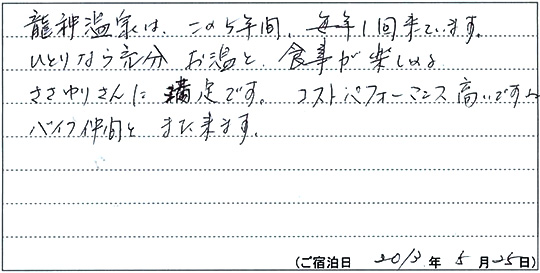 龍神温泉は、この5年間、毎年1回来ています。
ひとりなら充分 お温と、食事が楽しめる
ささゆりさんに 満足です。 コストパフォーマンス 高いですよ
バイク仲間と また来ます。
(ご宿泊日 2013 年 5 月 25 日)